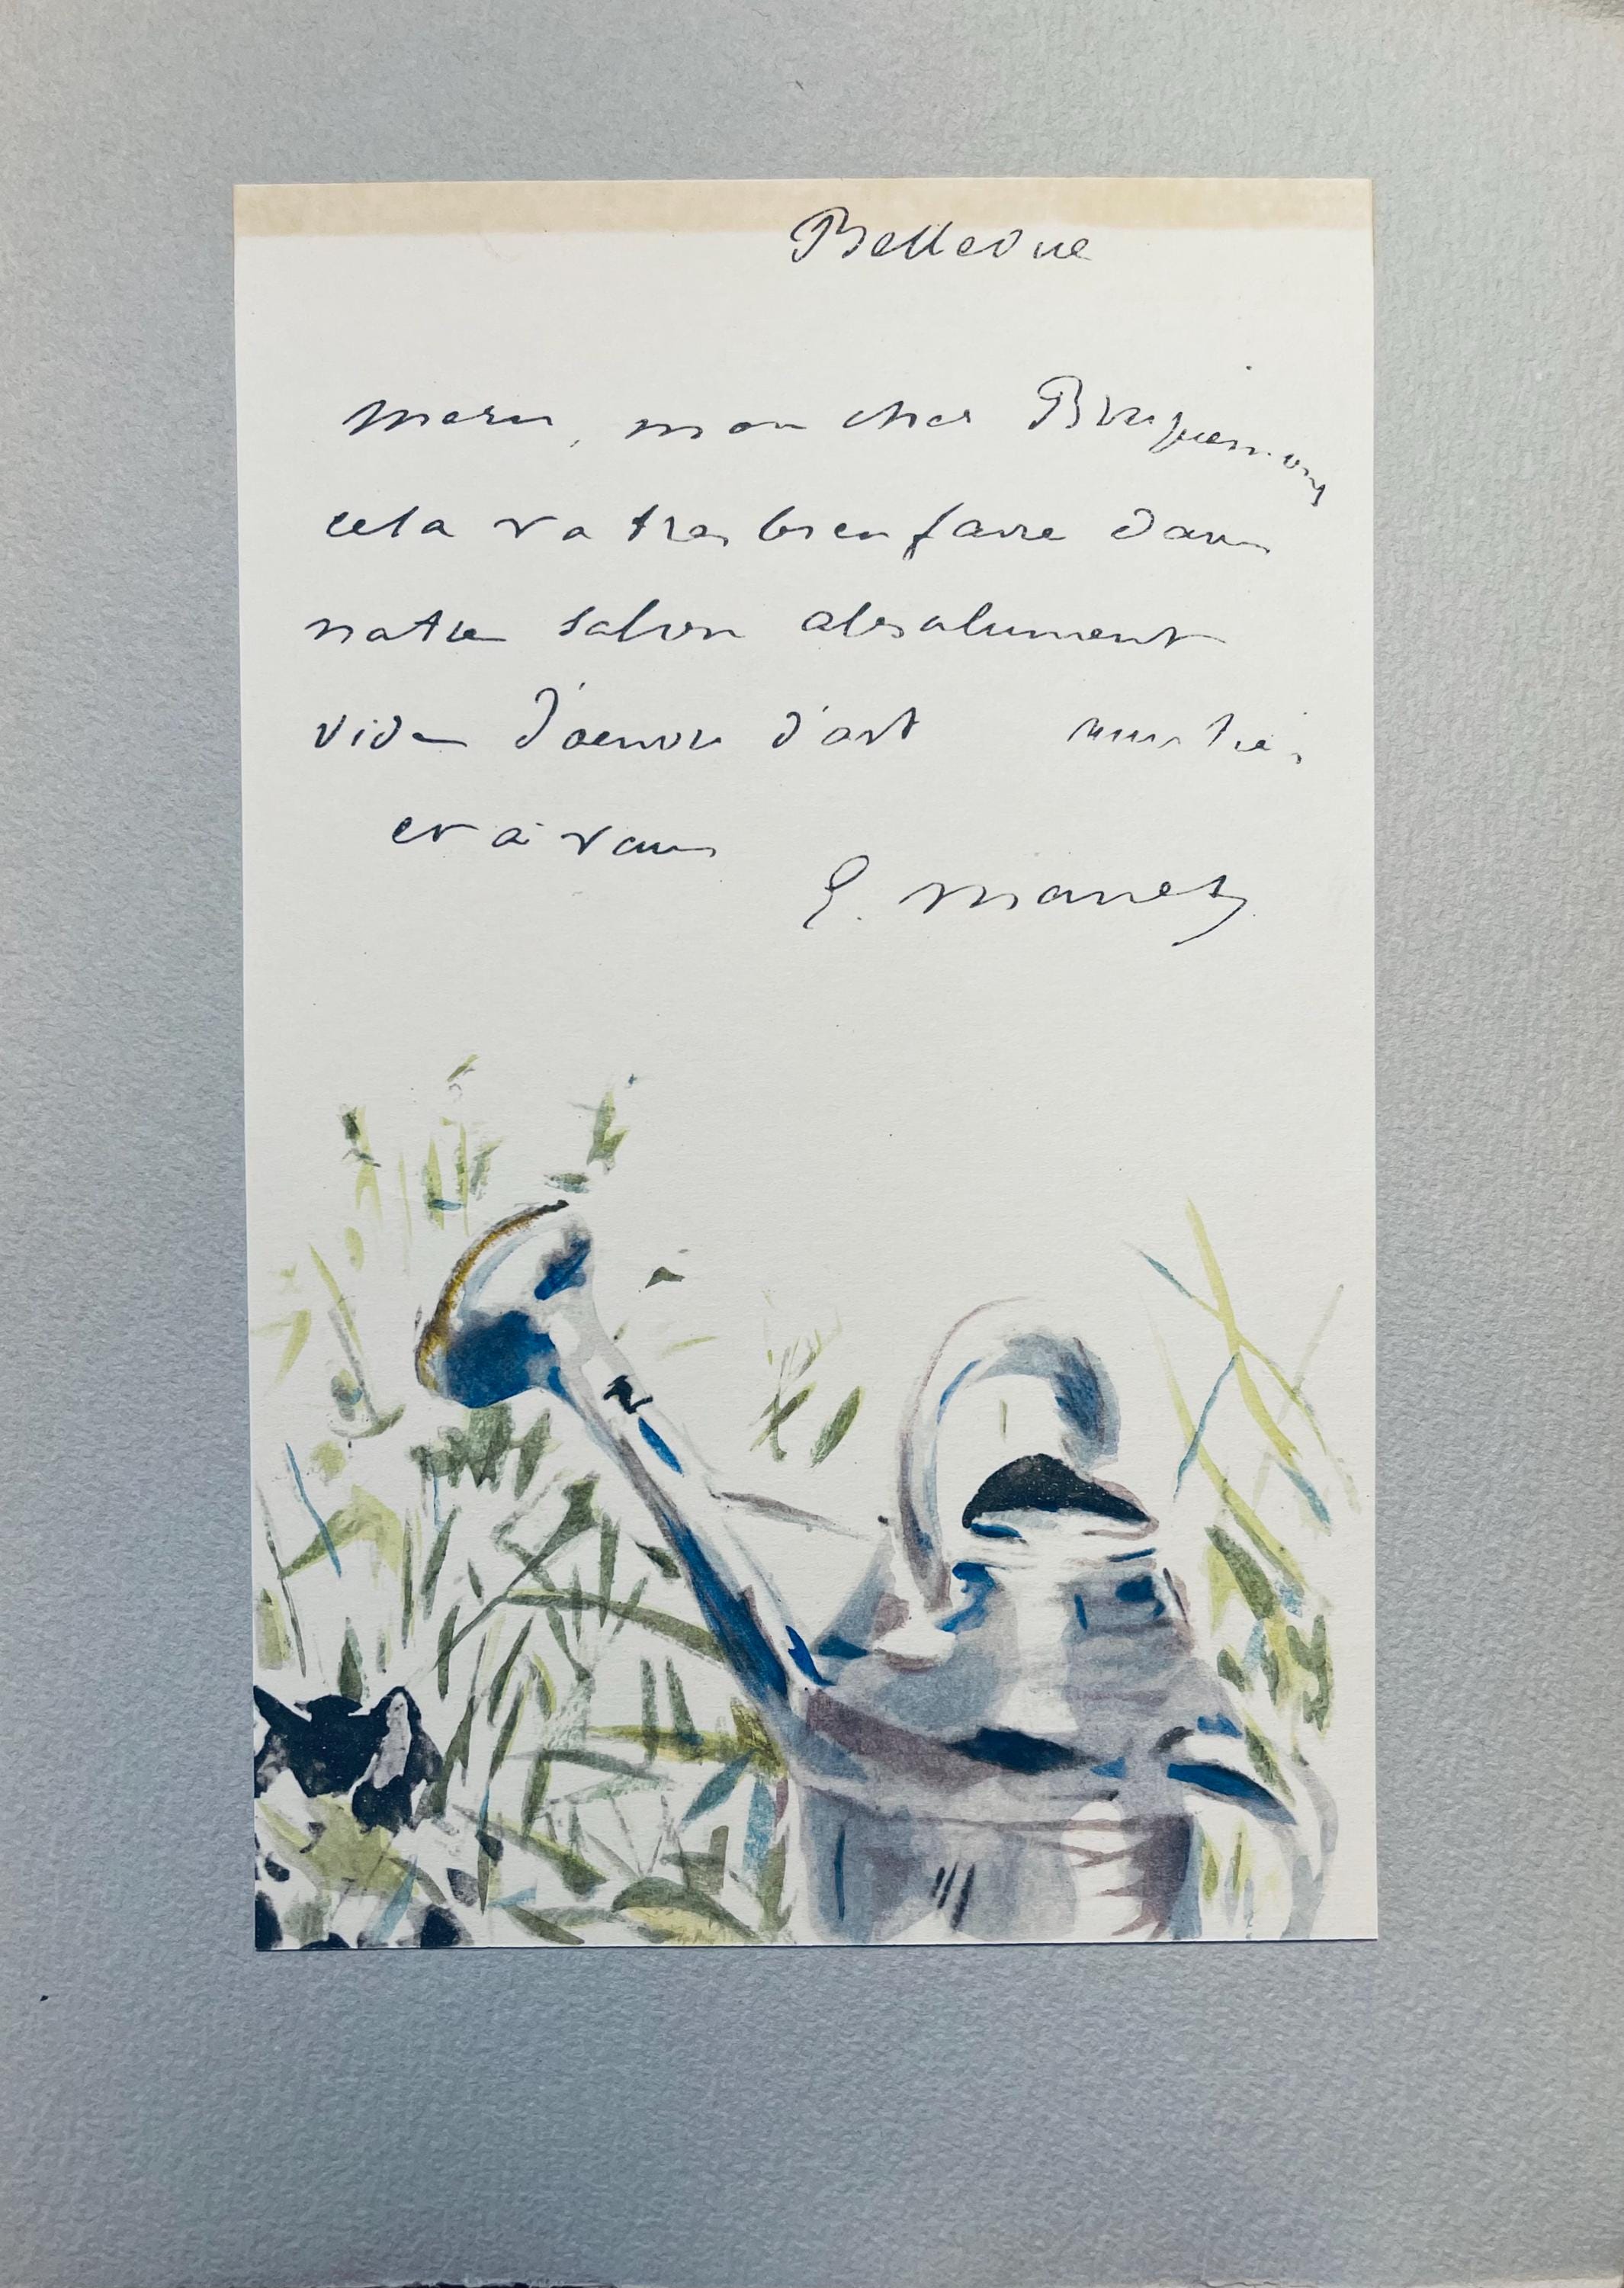 Bellevue
merci, mon cher Braquemond
cela va tres bien faire dans
notre salon absolument
vide d'oeuvre d'art
et à vous
E. Manet